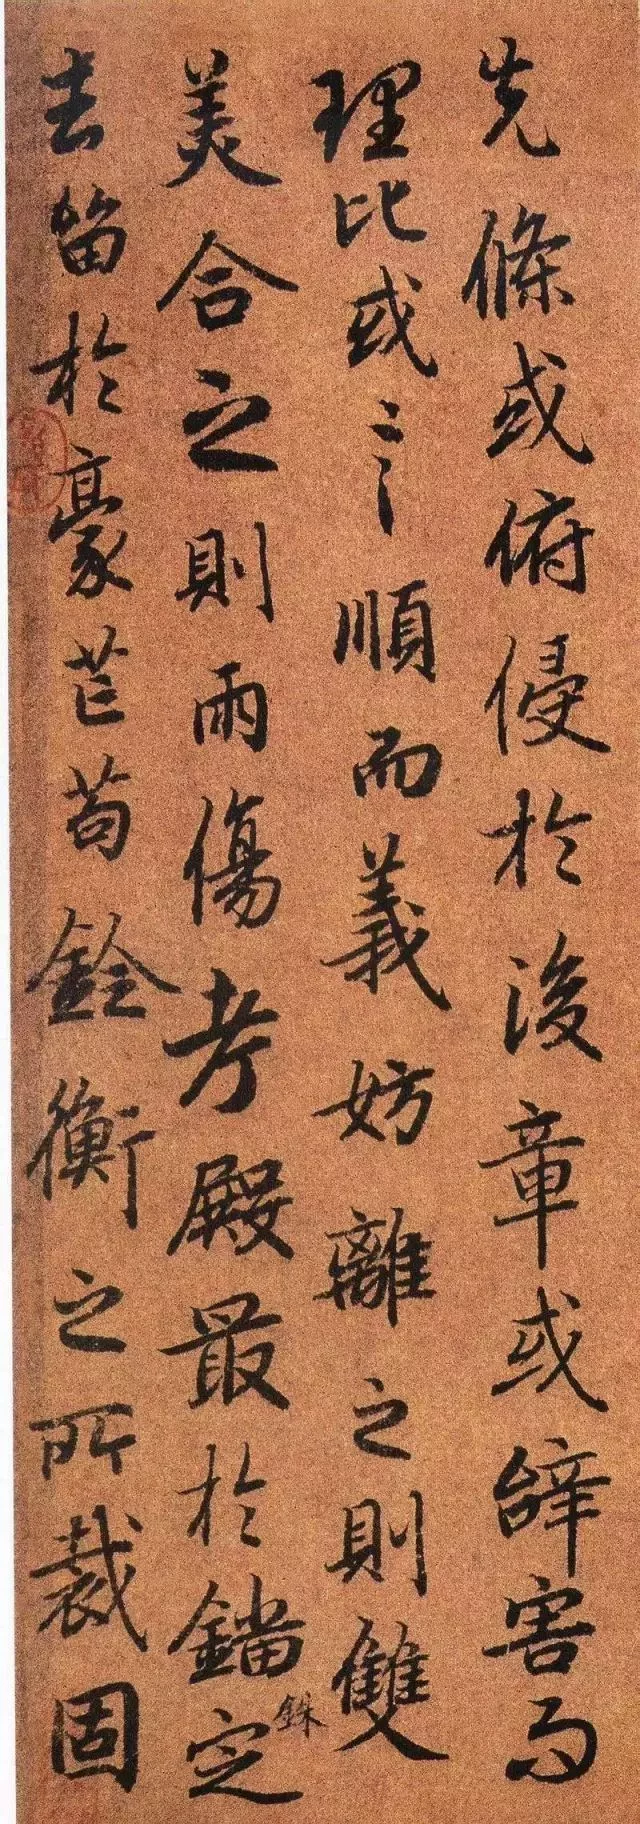 先條或俯侵於後章或辭害而
理比或言順而義妨離之則雙
美合之則兩傷考殿最於錙銖定
去留於豪芒苟銓衡之所裁固